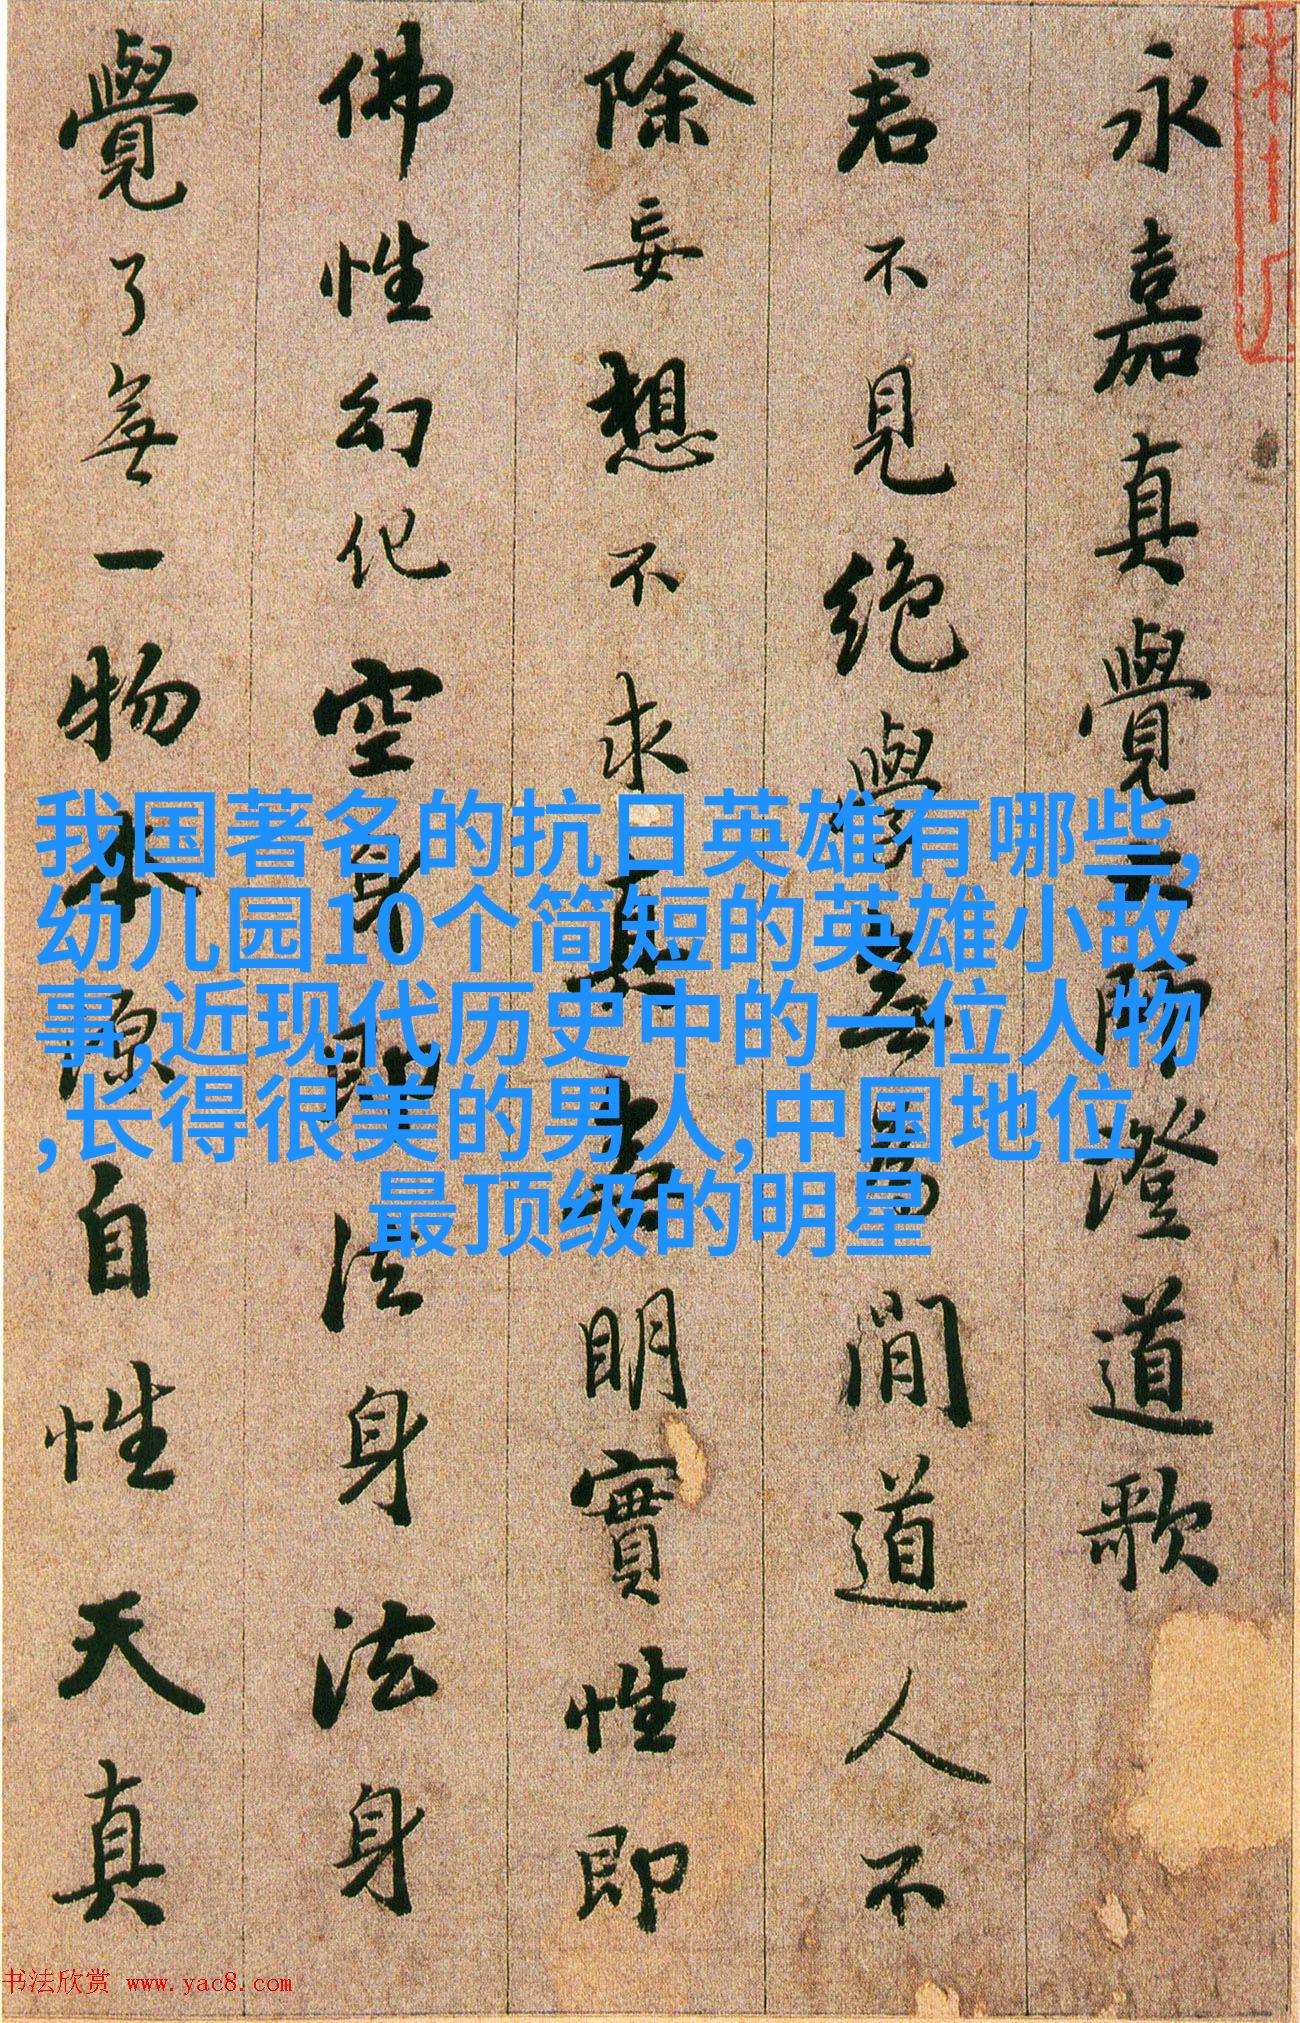 永嘉真覺大師澄道歌
君不見絕學無為閒道人不
除妄想不求真無明實性即
佛性幻化空身即法身法身
覺了無一物本源自性天真
我国著名的抗日英雄有哪些,
幼儿园10个简短的英雄小故
事,近现代历史中的一位人物
,长得很美的男人,中国地位
最顶级的明星
书法欣赏 www.yac8.com